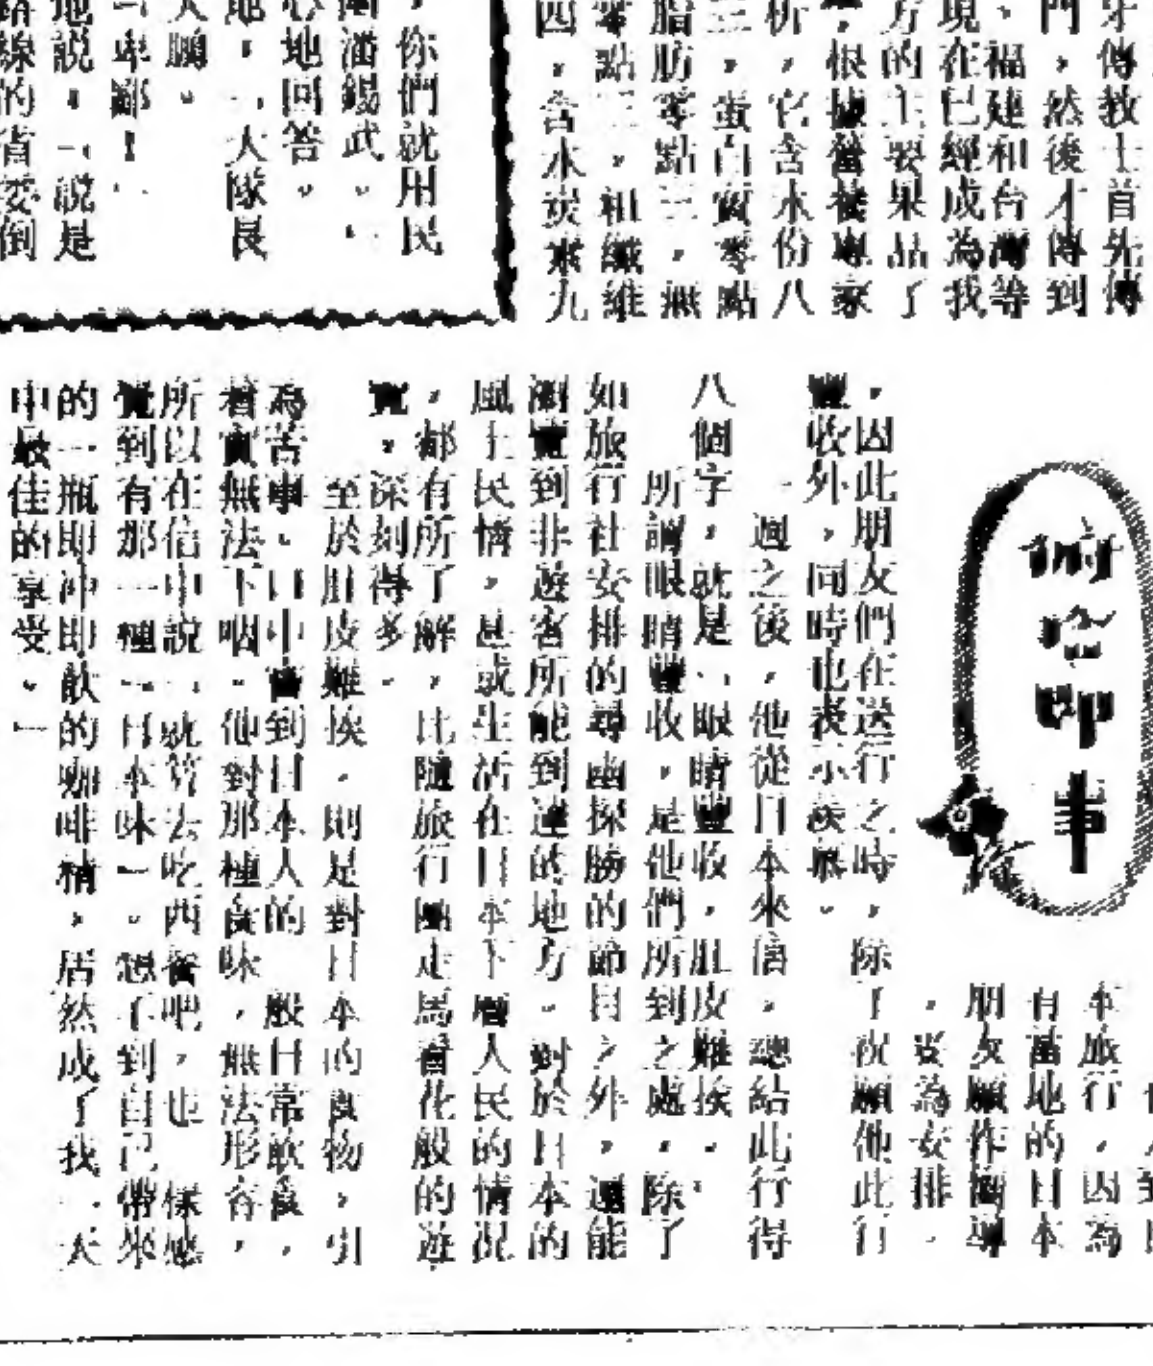 牙傳教士首先傳
門，然後才傳到
、福建和台灣等
現在已經成為我
方的主要果品了
，根據營養專家
析，它含水份八
三，蛋白質零點
脂肪零點三，無
零點三，粗纖維
四，含水炭素九
，你們就用民
潘錫武。」
心地回答。
地，「大隊長
大鵬。
卑鄙！」
地說，「說是
路線的省委倒
咖啡事
本旅行，因為
有當地的日本
朋友願作嚮導
，安為安排，
，因此朋友們在送行之時，除了祝願他此行
豐收外，同時也表示羨慕。
一週之後，他從日本來信，總結此行得
八個字，就是「眼睛豐收，肚皮難挨」。
所謂眼睛豐收，是他們所到之處，除了
如旅行社安排的尋幽探勝的節目之外，還能
瀏覽到非遊客所能到達的地方。對於日本的
風土民情，甚或生活在日本下層人民的情況
，都有所了解，比隨旅行團走馬看花般的遊
覽，深刻得多。
至於肚皮難挨，則是對日本的食物，引
為苦事。口中嘗到日本人的一般日常飲食，
着實無法下咽。他對那種食味，無法形容，
所以在信中說「就算去吃西餐吧，也一樣感
覺到有那一種「日本味」。想不到自己帶來
的一瓶即沖即飲的咖啡精，居然成了我一天
中最佳的享受。」